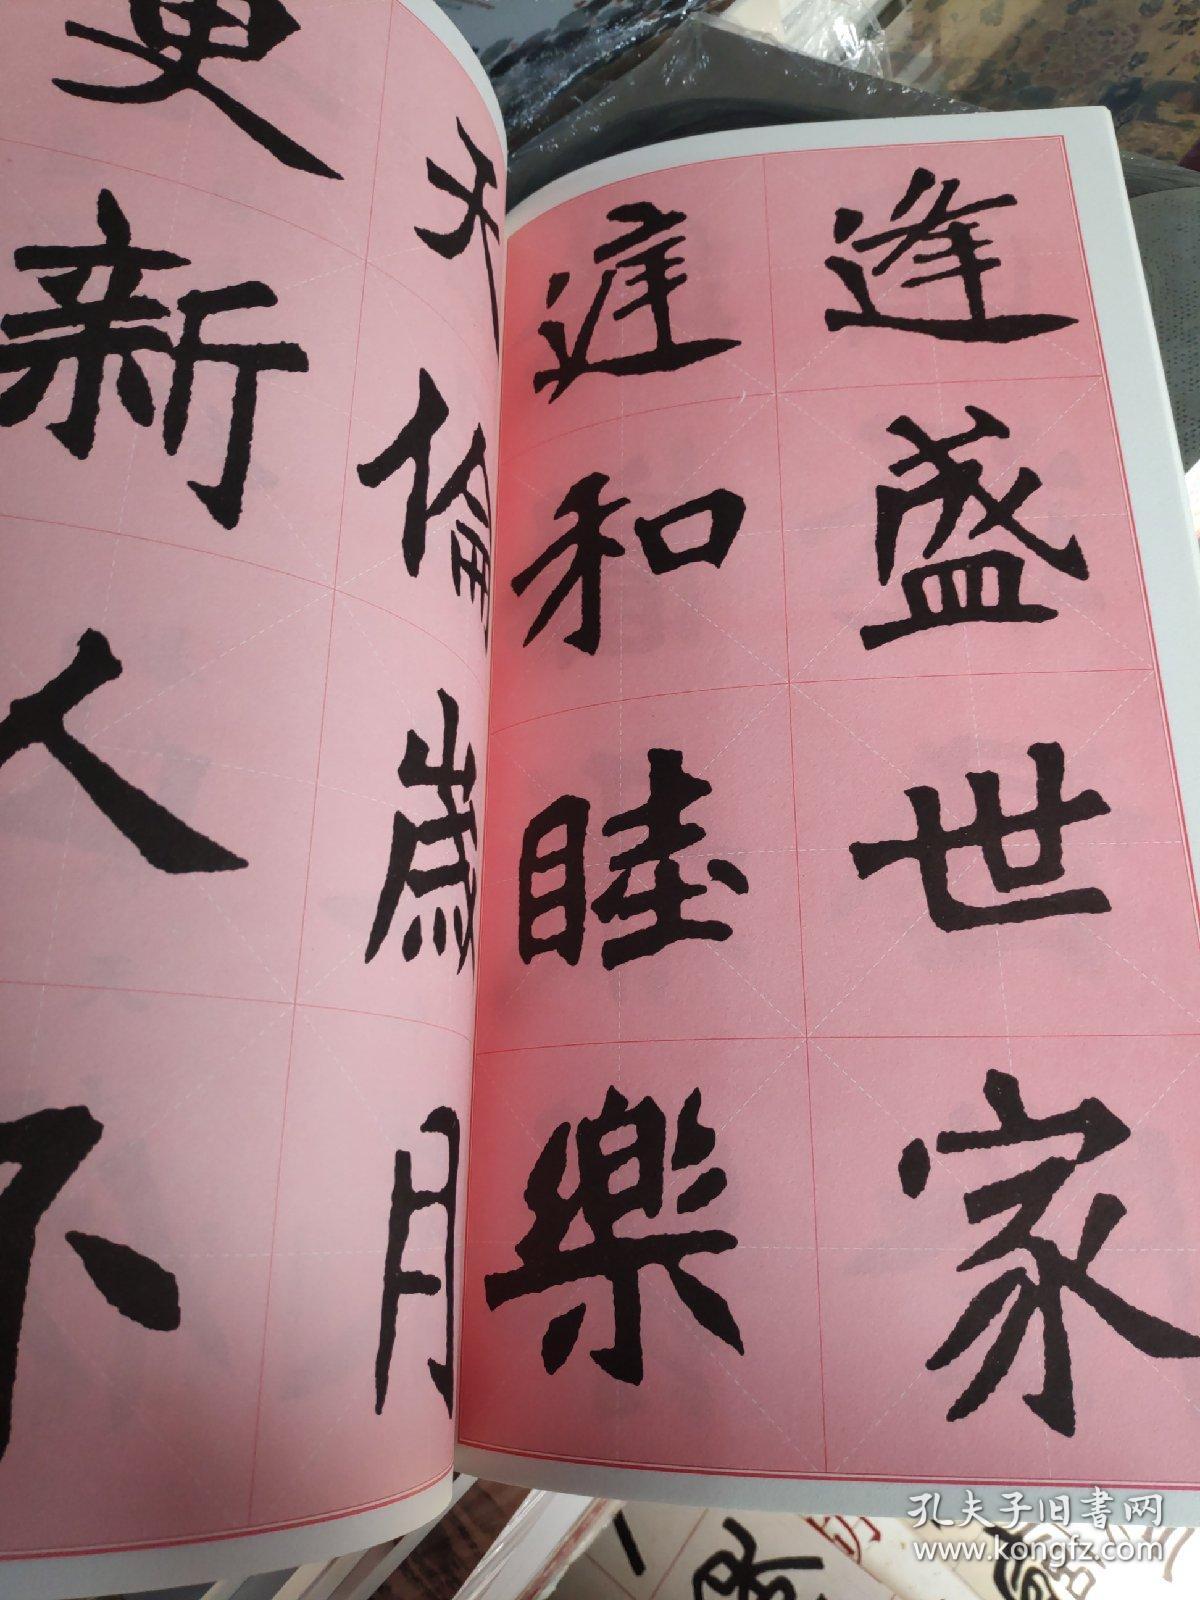 逢盛世家
庭和睦樂
天倫歲月
更新人不
孔夫子旧書网
www.kongfz.com